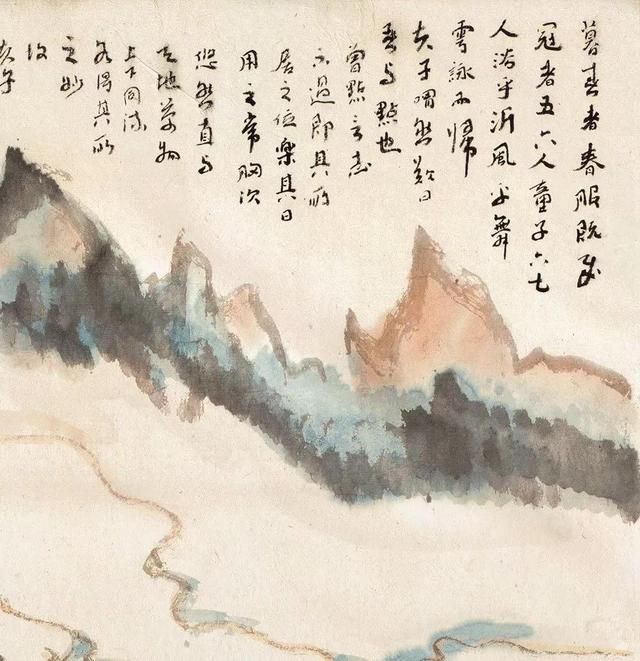 暮春者春服既成
冠者五六人童子六七
人浴乎沂風乎舞
雩詠而歸
夫子喟然歎曰
吾与點也
曾點言志
不過即其所
居之位樂其日
用之常胸次
悠然直与
天地萬物
上下同流
各得其所
之妙
故
夫子